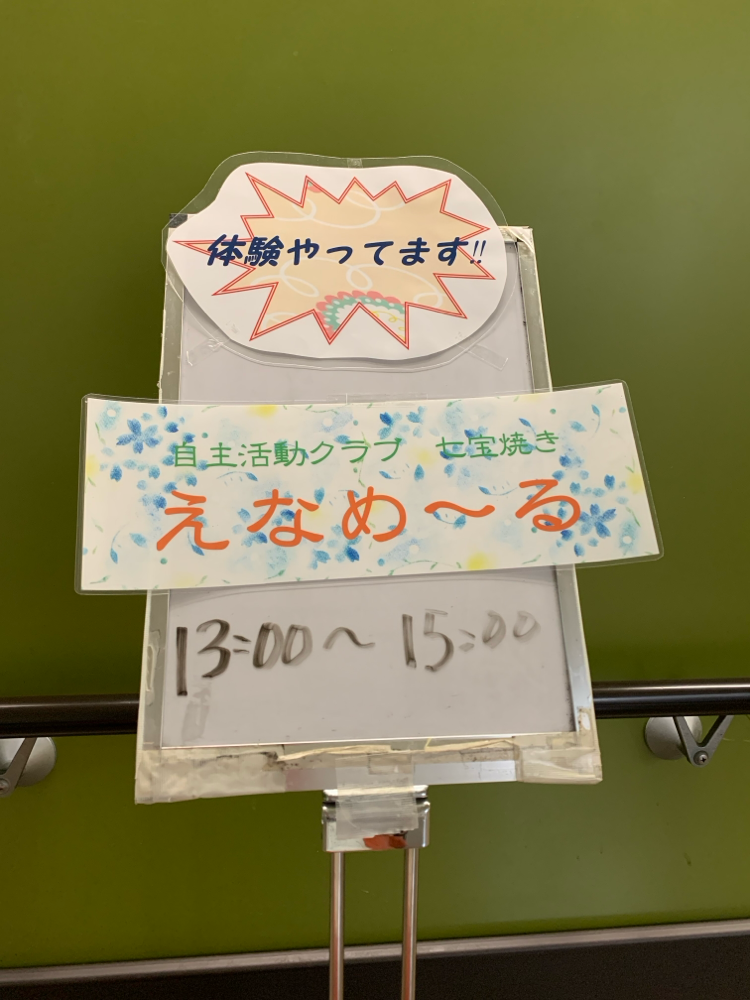 体験やってます!!
自主活動クラブ　七宝焼き
えなめ～る
13:00～15:00